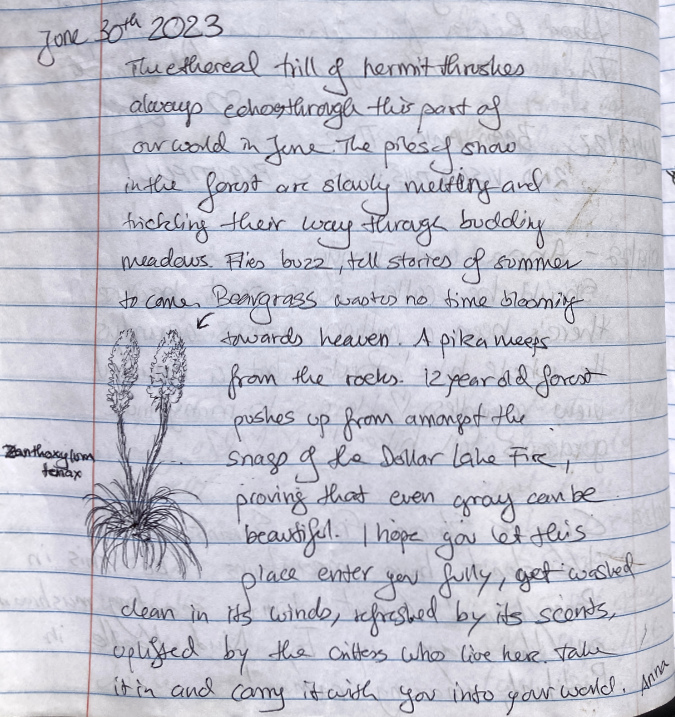 June 30th 2023
The ethereal trill of hermit thrushes
always echoes through this part of
our world in June. The piles of snow
in the forest are slowly melting and
trickling their way through budding
meadows. Flies buzz, tell stories of summer
to come. Beargrass wastes no time blooming
towards heaven. A pika meeps
from the rocks. 12 year old forest
pushes up from amongst the
snags of the Dollar Lake Fire,
Zanthoxylum
tenax
proving that even gray can be
beautiful. I hope you let this
place enter you fully, get washed
clean in its winds, refreshed by its scents,
uplifted by the critters who live here. Take
it in and carry it with you into your world. Anna